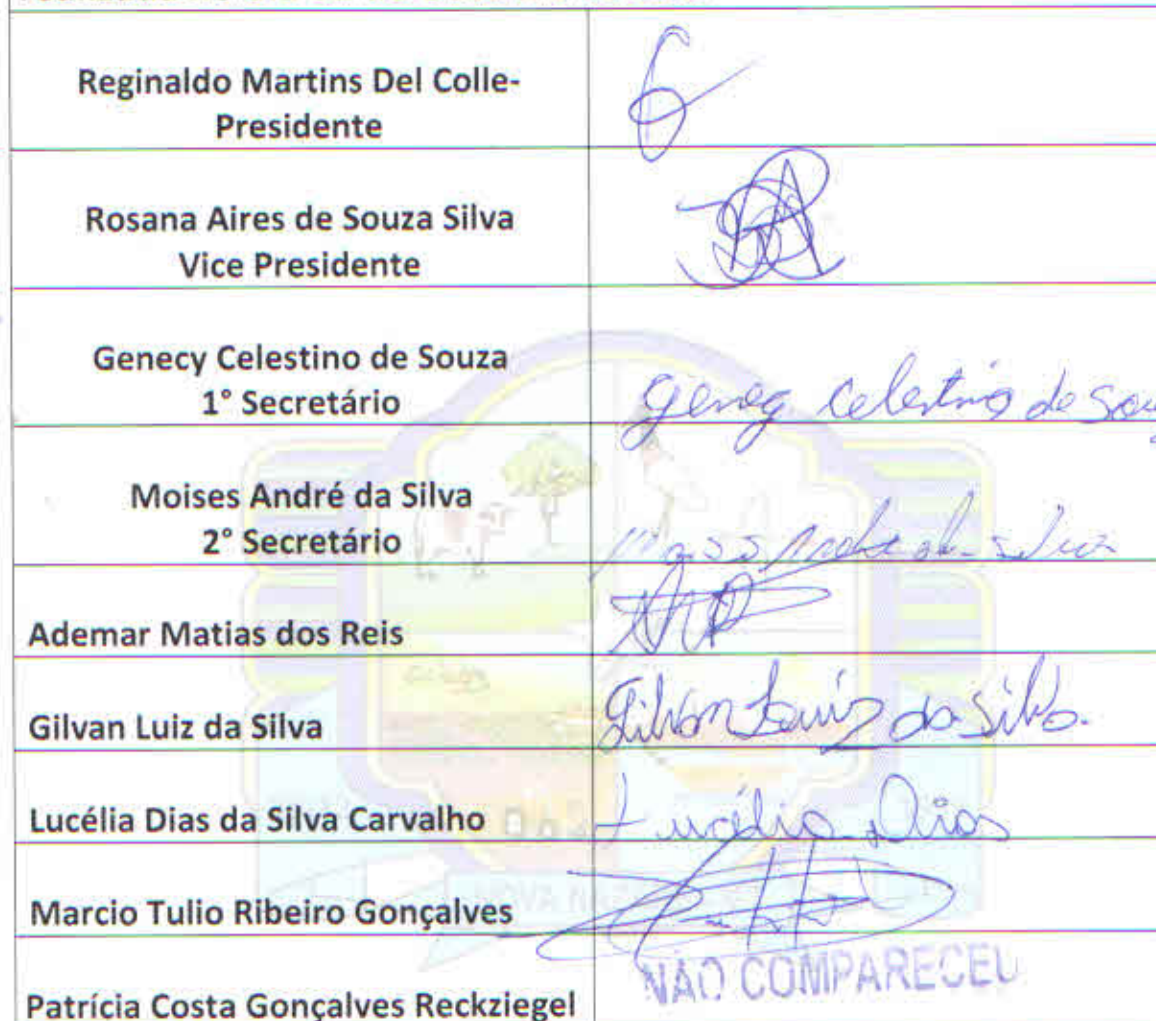 Reginaldo Martins Del Colle-
Presidente
Rosana Aires de Souza Silva
Vice Presidente
Genecy Celestino de Souza
1° Secretário
Genecy Celestino de Sou
Moises André da Silva
2° Secretário
da silva
Ademar Matias dos Reis
Gilvan Luiz da Silva
Gilvan Luiz da Silva.
Lucélia Dias da Silva Carvalho
Lucélia Dias
Marcio Tulio Ribeiro Gonçalves
NOVA NAZARÉ
Patrícia Costa Gonçalves Reckziegel
NÃO COMPARECEU